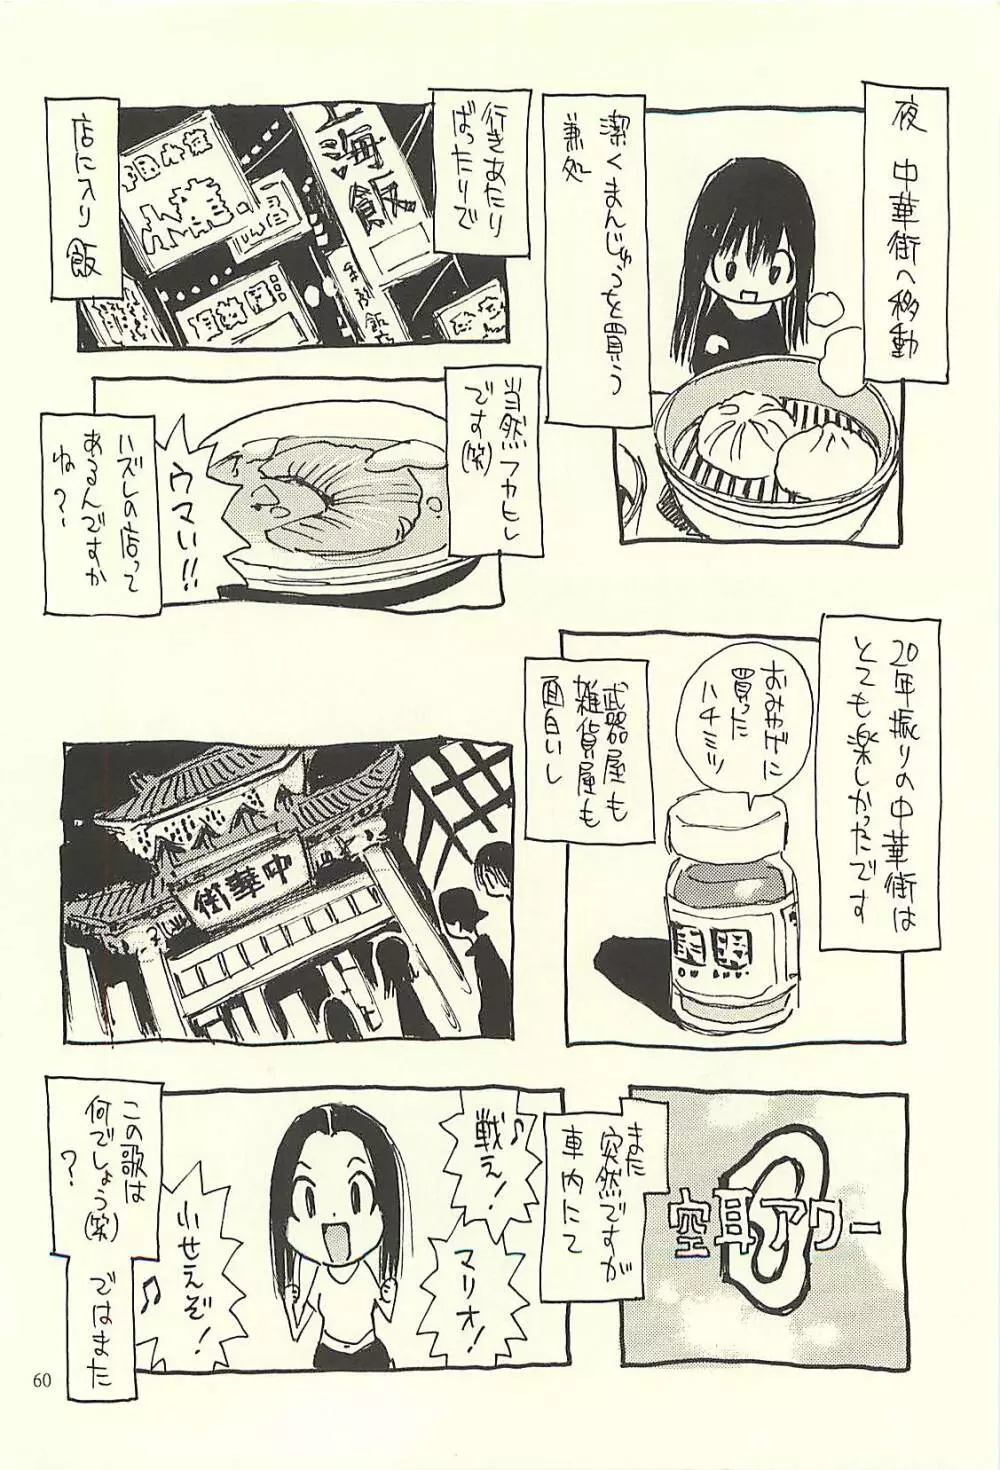 夜　中華街へ移動
潔くまんじゅうを買う
兼処
行きあたり
ばったりで
上海飯
店に入り　飯
当然フカヒレ
です(笑)
ウマい!!
ハズレの店って
あるんですか
ね？
20年振りの中華街は
とても楽しかったです
おみやげに
買った
ハチミツ
武器屋も
雑貨屋も
面白いし
中華街
また
突然ですが
車内にて
空耳アワー
戦え！♪
マリオ！
小せえぞ！♪
この歌は
何でしょう(笑)
？
ではまた
60